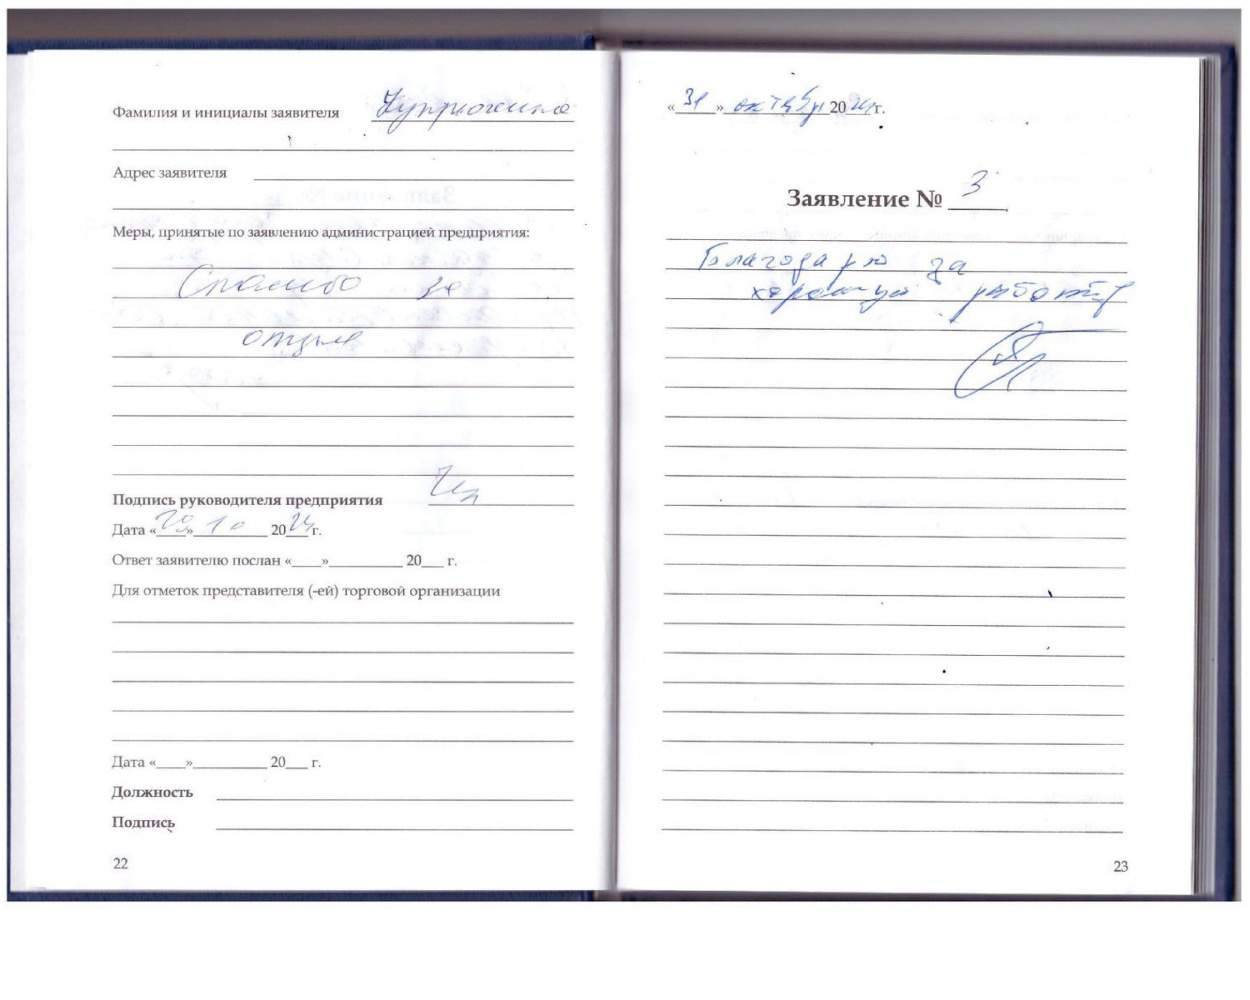 Фамилия и инициалы заявителя
Адрес заявителя
Меры, принятые по заявлению администрацией предприятия:
Спасибо за
отзыв
Подпись руководителя предприятия
Дата «29» 10 2024 г.
Ответ заявителю послан «____»__________ 20___ г.
Для отметок представителя (-ей) торговой организации
Дата «____»__________ 20___ г.
Должность
Подпись
22
«31» октября 2024 г.
Заявление № 3
Благодарю за
хорошую работу
23